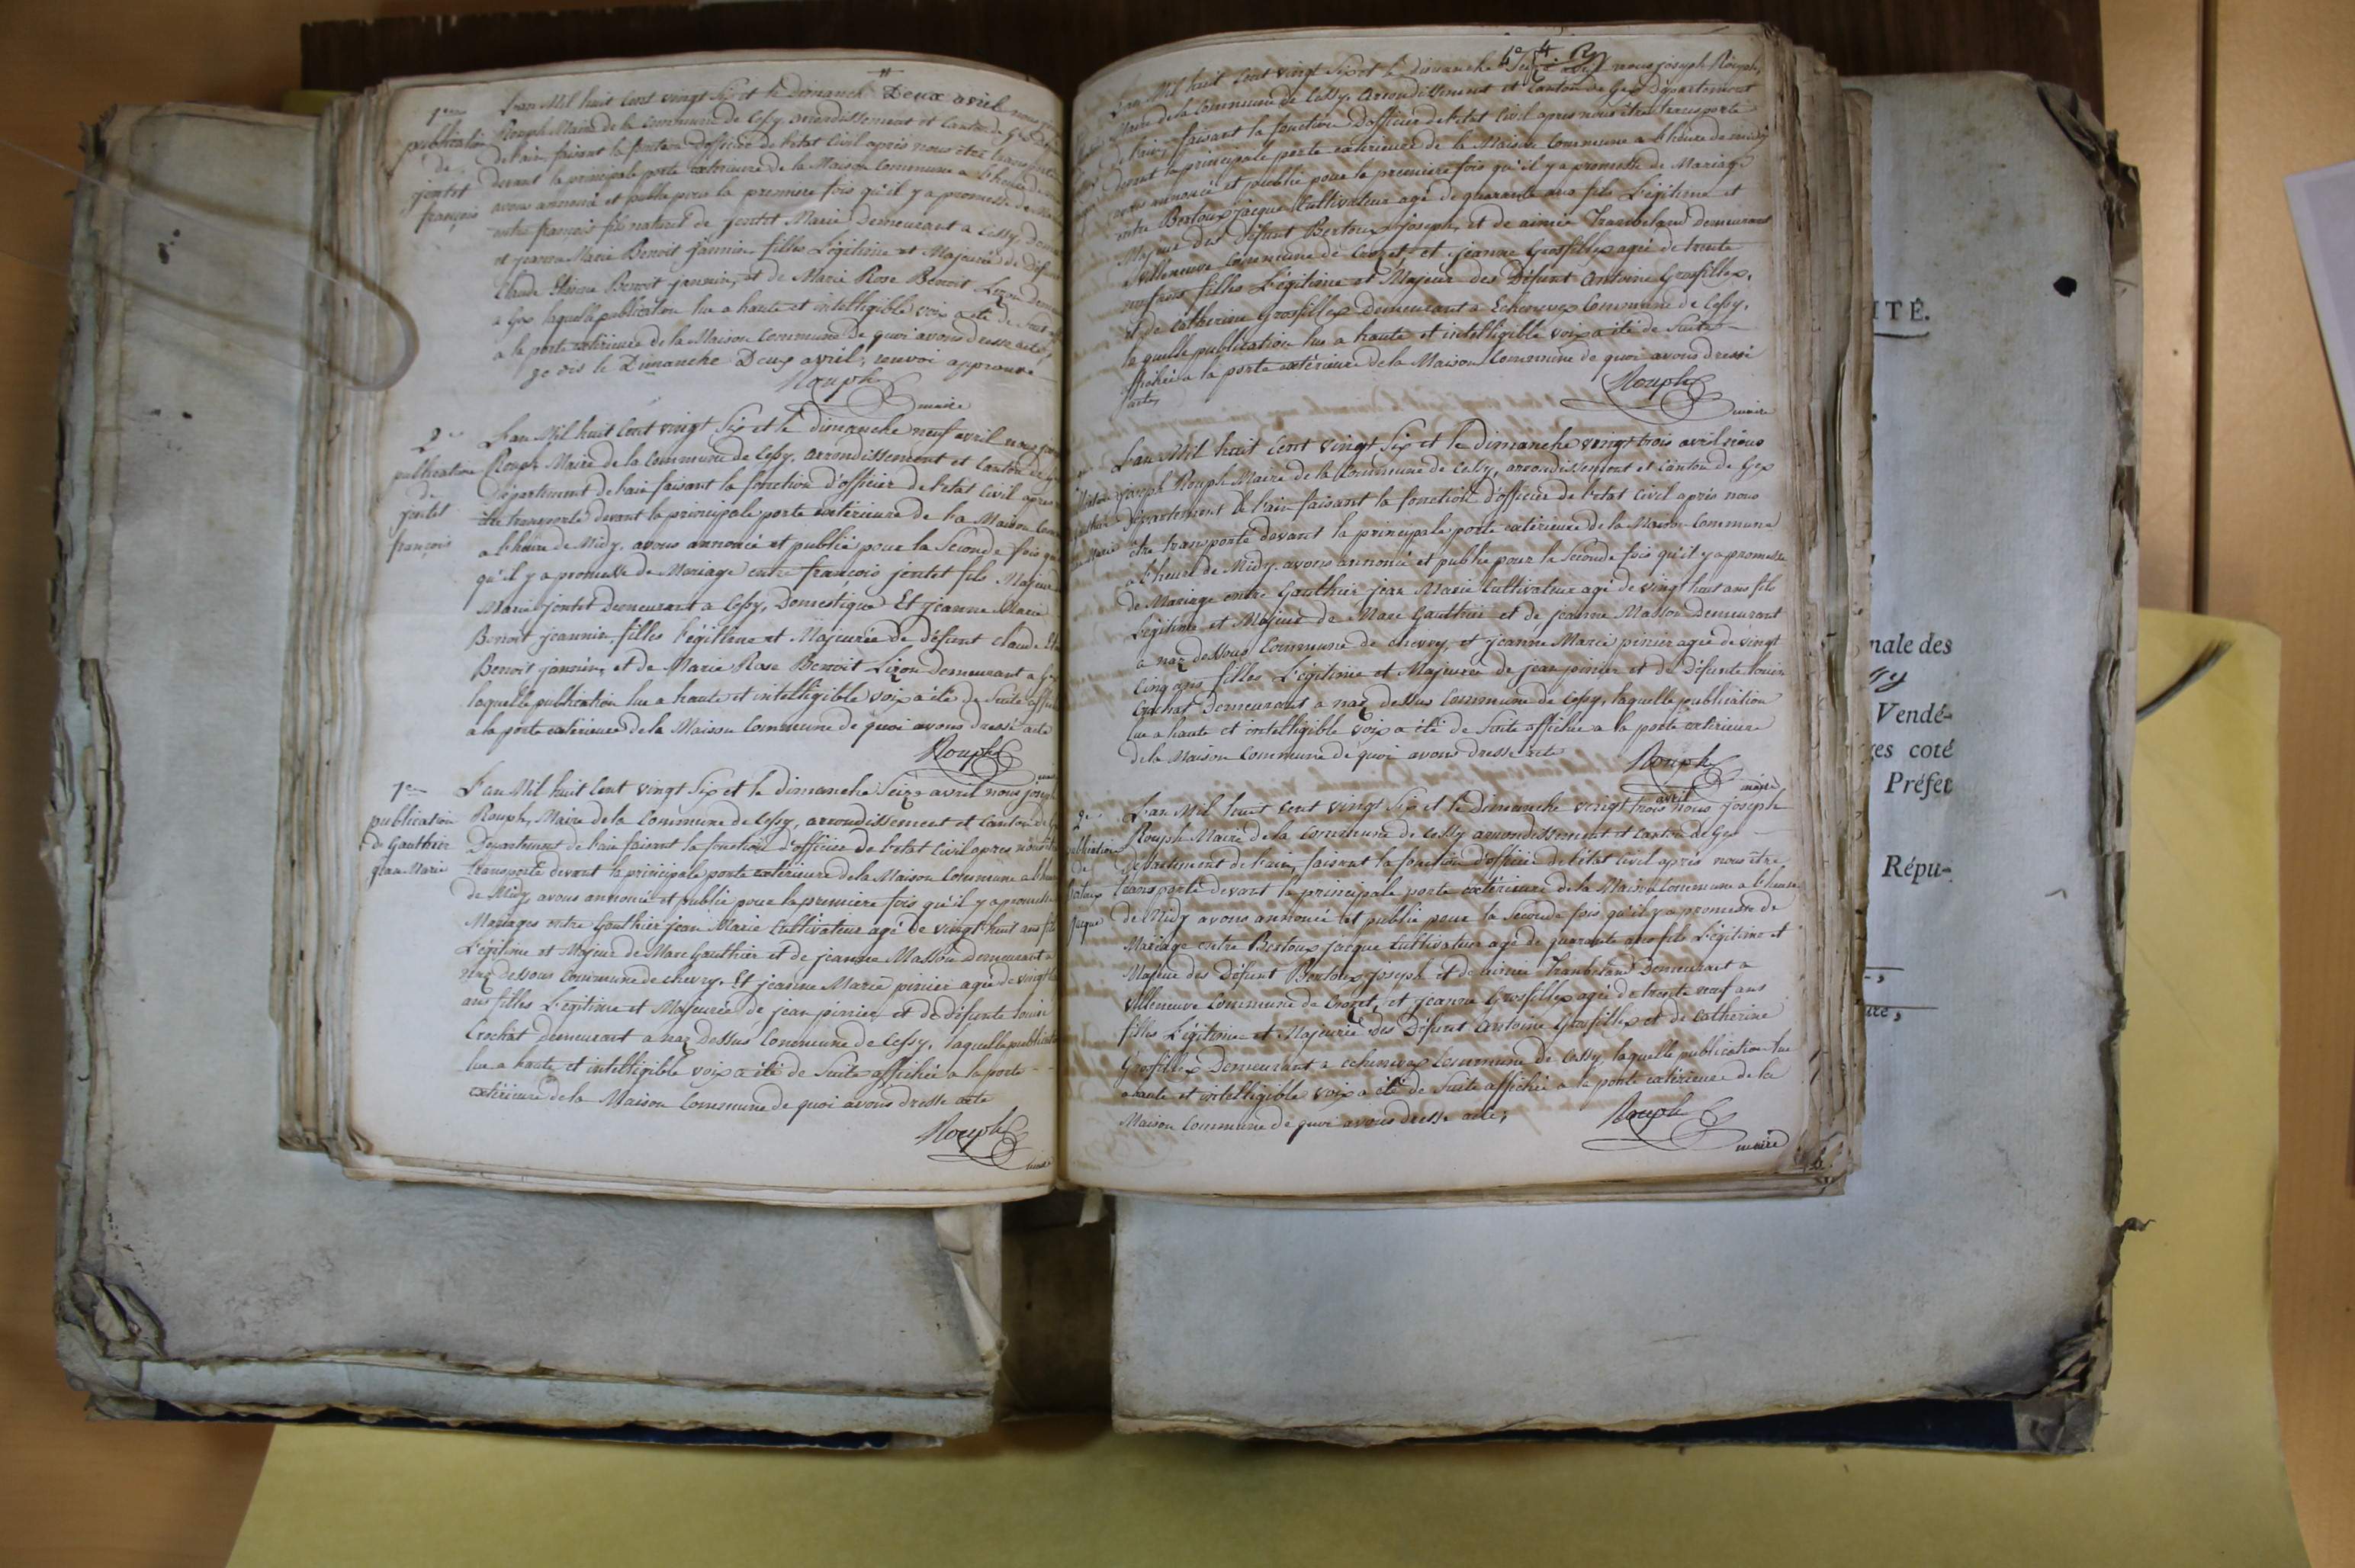 1ere publication de jontet françois
L'an Mil huit Cent vingt Six et le dimanch Deux avril nous
Rouph Maire de la Commune de Cessy, arrondissement et Canton de Gex
de l'ain, faisant la fonction d'officier de l'etat Civil après nous être transporté
devant la principale porte extérieure de la Maison Commune a l'heure de
avons annoncé et publié pour la premiere fois qu'il y a promesse de
entre francois fils naturel de jontet Marie Demeurant a Cessy,
et jeanne Marie Benoit jannin, filles Légitime et Majeurée de
Claude Etienne Benoit jannin, et de Marie Rose Benoit Lizon
a Gex laquelle publication lue a haute et intelligible voix a été de Suite
a la porte extérieure de la Maison Commune de quoi avons dressé acte,
je dis le Dimanche Deux avril, renvoi approuvé
Rouph
maire
2e publication de jontet françois
L'an Mil huit Cent vingt Six et le dimanche neuf avril nous
Rouph Maire de la Commune de Cessy, arrondissement et Canton de
Département de l'ain faisant la fonction d'officier de l'etat Civil après
être transporté devant la principale porte extérieure de la Maison
a l'heure de Midy, avons annoncé et publié pour la Seconde fois
qu'il y a promesse de Mariage entre françois jontet fils Majeur
Marie jontet Demeurant a Cessy, Domestique Et jeanne Marie
Benoit jeannin, filles Légitime et Majeurée de défunt Claude
Benoit jannin, et de Marie Rose Benoit Lizon Demeurant a
laquelle publication lue a haute et intelligible voix a été de Suite
a la porte extérieure de la Maison Commune de quoi avons dressé acte
Rouph
1ere publication de Gauthier jean Marie
L'an Mil huit Cent vingt Six et le dimanche Seize avril nous joseph
Rouph, Maire de la Commune de Cessy, arrondissement et Canton de
Département de l'ain faisant la fonction d'officier de l'etat Civil après nous
transporté devant la principale porte extérieure de la Maison Commune a
de Midy, avons annoncé et publié pour la premiere fois qu'il y a promesse
Mariages entre Gauthier jean Marie Cultivateur agé de vingt huit ans fils
Légitime et Majeur de Marc Gauthier et de jeanne Masson Demeurant a
naz Dessous Commune de chevry, Et jeanne Marie pinier agée de vingt
ans filles Légitime et Majeurée de jean pinier, et de défunte Louise
Crochat Demeurant a naz Dessus Commune de Cessy, laquelle publication
lue a haute et intelligible voix a été de Suite affichée a la porte
extérieure de la Maison Commune de quoi avons dressé acte
Rouph
maire
4
L'an Mil huit Cent vingt Six et le dimanche avril nous joseph Rouph,
Maire de la Commune de Cessy, arrondissement et Canton de Gex Département
de l'ain, faisant la fonction d'officier de l'etat Civil apres nous être transporté
devant la principale porte extérieure de la Maison Commune a l'heure de midy
avons annoncé et publié pour la premiere fois qu'il y a promesse de Mariage
entre Bertoux jacque Cultivateur agé de quarante ans fils Légitime et
Majeur des Défunt Bertoux joseph, et de aimée Demeurant
a Villeneuve Commune de Crozet, et jeanne Grosfillex agée de trente
neuf ans filles Légitime et Majeur des Défunt Antoine Grosfillex,
et de Catherine Grosfillex Demeurant a Echenevex Commune de Cessy,
la quelle publication lue a haute et intelligible voix a été de Suite
affichée a la porte extérieure de la Maison Commune de quoi avons dressé
acte,
Rouph
maire
L'an Mil huit Cent vingt Six et le dimanche vingt trois avril nous
joseph Rouph Maire de la Commune de Cessy, arrondissement et Canton de Gex
Département de l'ain faisant la fonction d'officier de l'etat Civil après nous
être transporté devant la principale porte extérieure de la Maison Commune
a l'heure de Midy, avons annoncé et publié pour la Seconde fois qu'il y a promesse
de Mariage entre Gauthier jean Marie Cultivateur agé de vingt huit ans fils
Légitime et Majeur de Marc Gauthier et de jeanne Masson Demeurant
a naz dessous Commune de chevry, et jeanne Marie pinier agée de vingt
Cinq ans filles Légitimie et Majeurée de jean pinier et de Défunte Louise
Crochat Demeurant a naz dessus Commune de Cessy, laquelle publication
lue a haute et intelligible voix a été de Suite affichée a la porte extérieure
de la Maison Commune de quoi avons dressé acte
Rouph
maire
2e publication de Bertoux jacque
L'an Mil huit Cent vingt Six et le dimanche vingt trois avril nous joseph
Rouph Maire de la Commune de Cessy arrondissement et Canton de Gex
département de l'ain, faisant la fonction d'officier de l'état civil après nous être
transporté devant la principale porte extérieure de la Maison Commune a l'heure
de Midy avons annoncé et publié pour la Seconde fois qu'il y a promesse de
Mariage entre Bertoux jacque Cultivateur agé de quarante ans fils Légitime et
Majeur des Défunt Bertoux joseph et de aimée Demeurant a
Villeneuve Commune de Crozet, et jeanne Grosfillex agée de trente neuf ans
filles Légitime et Majeurée des Défunt Antoine Grosfillex et de Catherine
Grosfillex Demeurant a echenevex Commune de Cessy, laquelle publication lue
a haute et intelligible voix a été de Suite affichée a la porte extérieure de la
Maison Commune de quoi avons dressé acte;
Rouph
maire
ITÉ.
nale des
Vendé-
ges coté
Préfet
Répu-